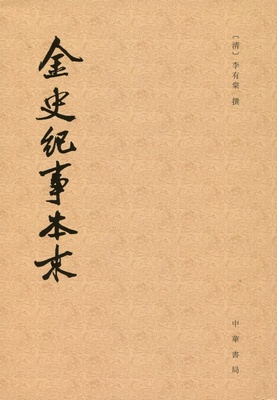 〔清〕李有棠 撰
金史紀事本末
中華書局